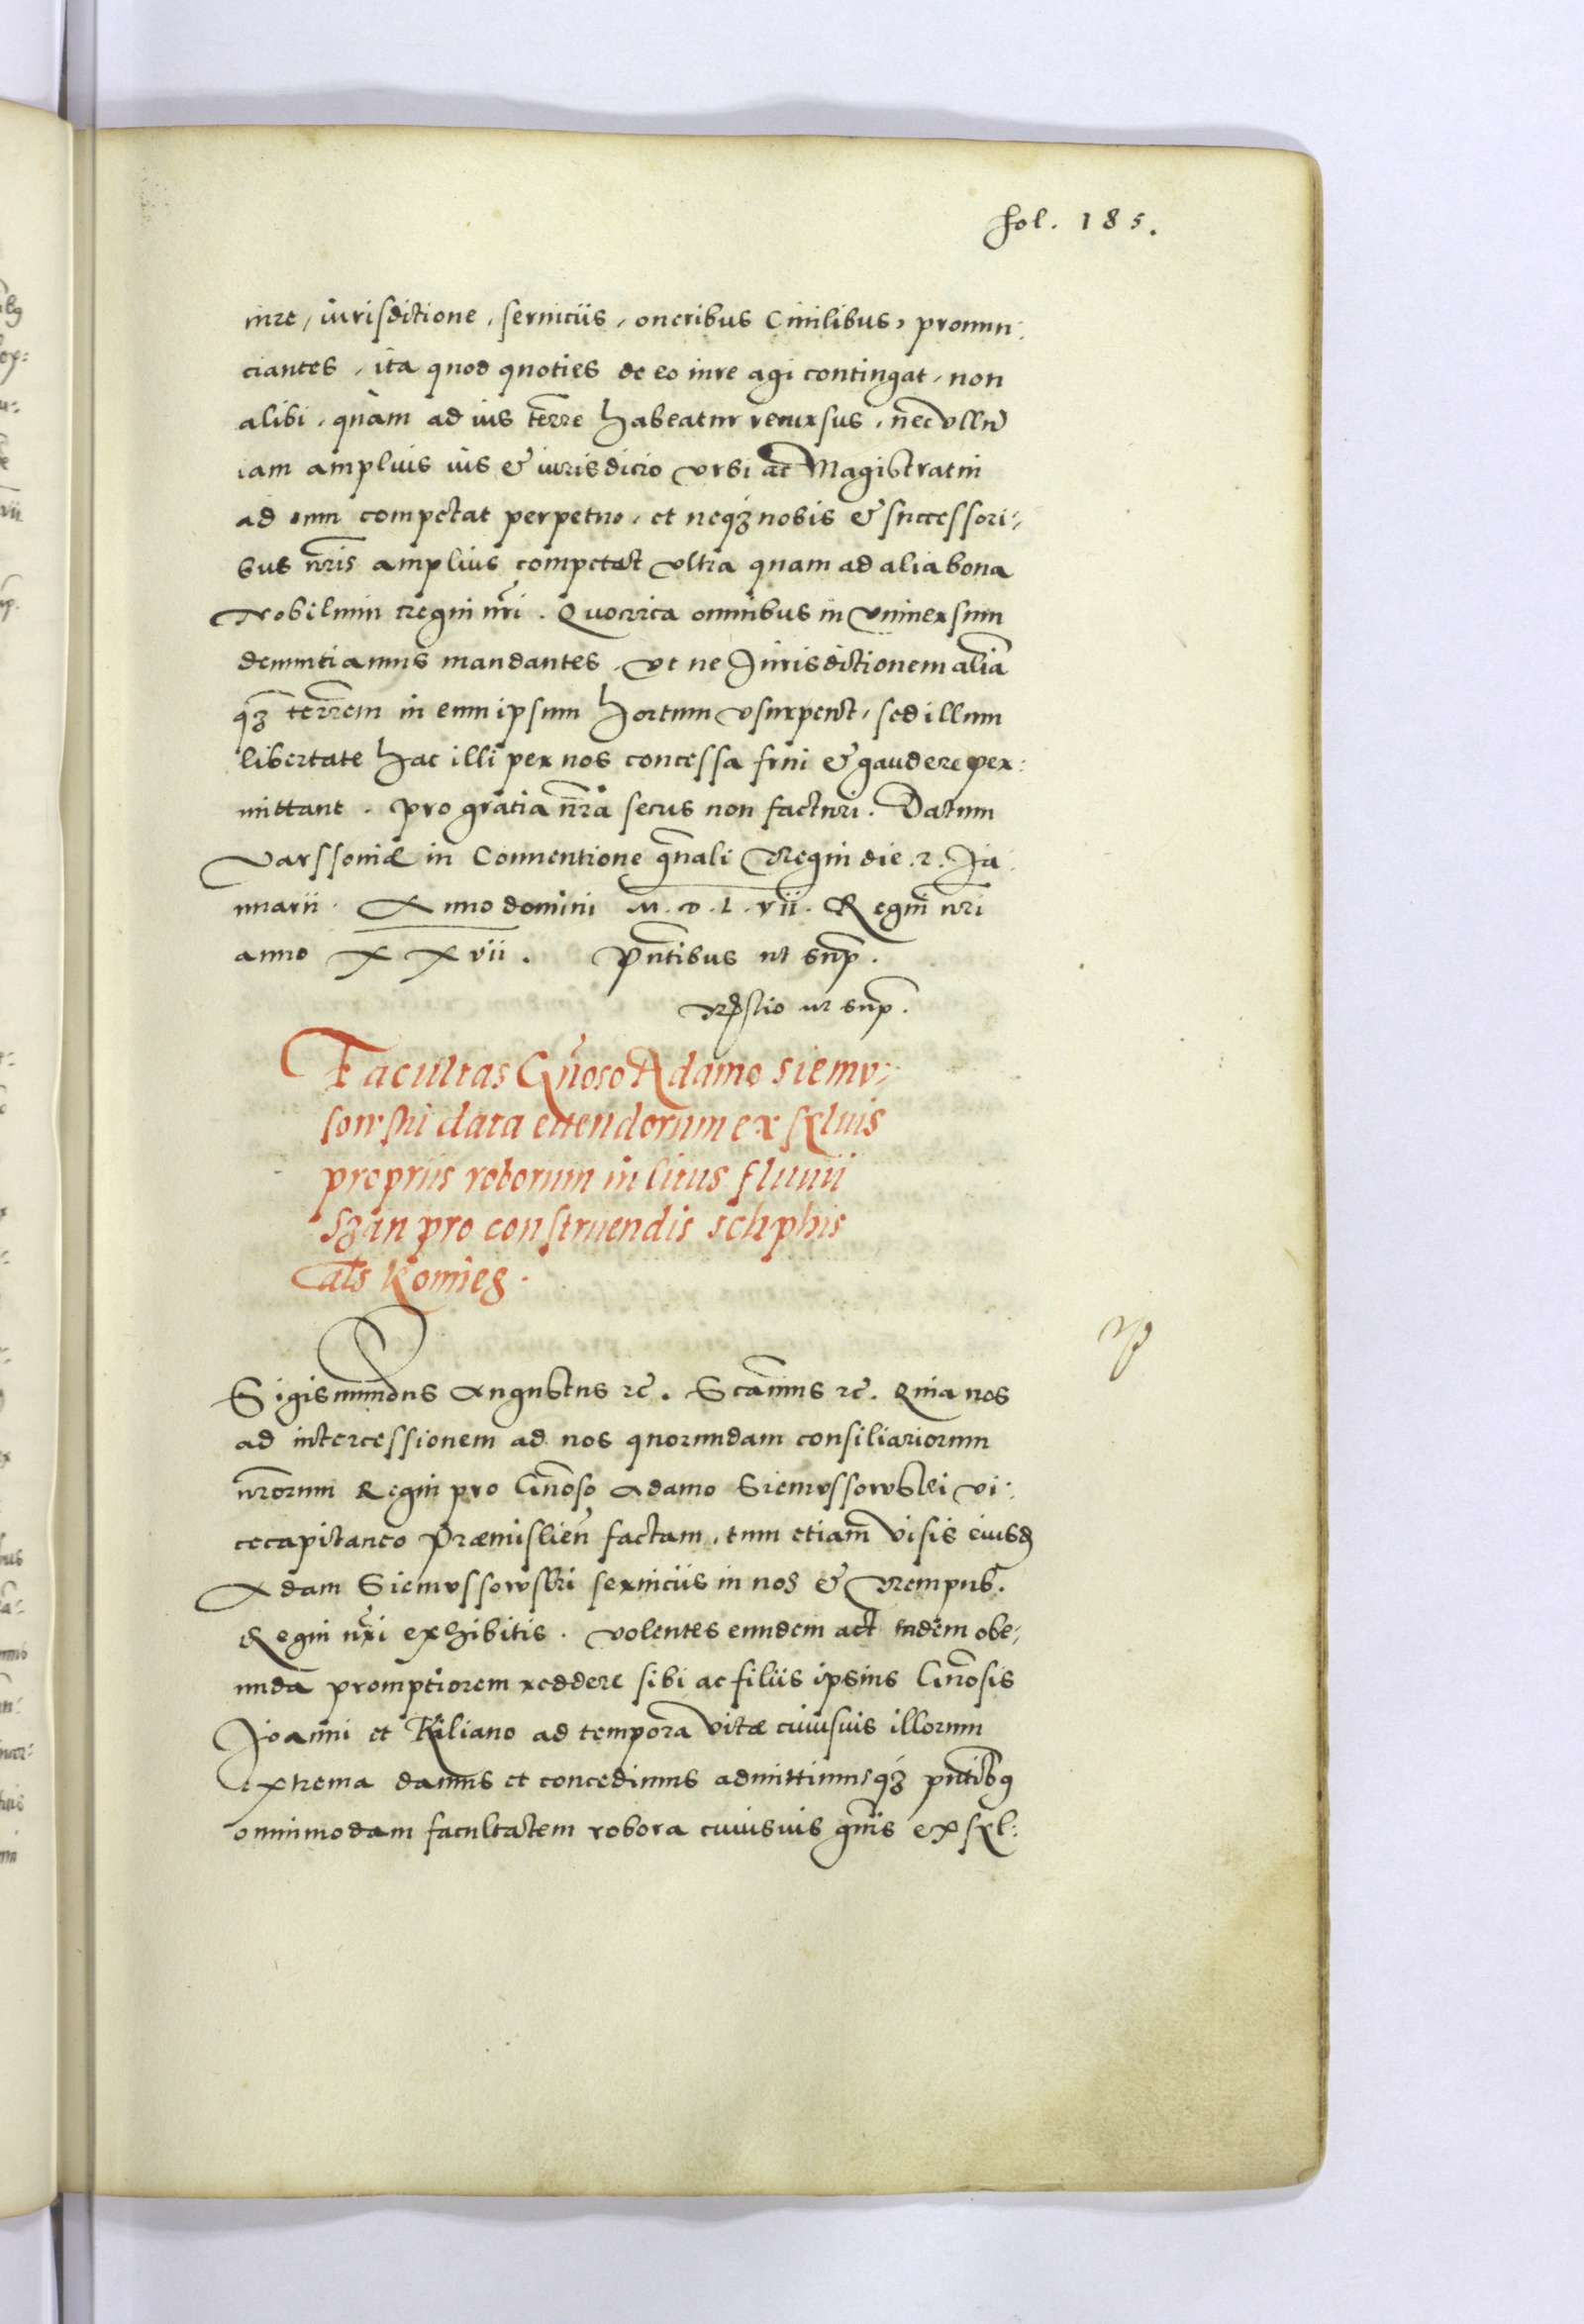 fol. 185.
iure, iurisdictione, seruiciis, oneribus Ciuilibus, pronun:
ciantes, ita quod quoties de eo iure agi contingat, non
alibi, quàm ad ius terre habeatur recursus, nec vllũ
iam amplius ius & iurisdicio vrbi ac Magistratui
ad eum competat perpetuo, et neqȝ nobis & successori:
bus nr̃is amplius competat vltra quam ad alia bona
Nobilium regni nr̃i. Quocirca omnibus in vniuersum
denuntiamus mandantes, vt ne Jurisdictionem aliã
qȝ terrẽm in eum ipsum hortum vsurpent, sed illum
libertate hac illi per nos concessa frui & gaudere per:
mittant. pro gratia nr̃a secus non facturi. Datum
Varssouiæ in Conuentione gñali Regni die .2. Ja:
nuarii. Anno domini M.D.L.vii. Regni nr̃i
anno XXvii. Pñtibus ut sup.
Rɇstio ut sup.
Facultas Gñoso Adamo Siemv:
sowski data euendorum ex syluis
propriis roborum in litus fluuii
Szan pro construendis schphis
al̃s Komieg.
Sigismundus Augustus ꝛc̃. Sc̃amus ꝛc̃. Quia nos
ad intercessionem ad nos quorundam consiliariorum
nr̃orum Regni pro Gñoso Adamo Siemvssowski vi:
cecapitaneo Præmislieñ factam, tum etiam visis eiusd̃
Adam Siemvssowski seruiciis in nos & Rempub.
Regni nr̃i exhibitis. volentes eundem act eadẽm obe:
unda promptiorem reddere sibi ac filiis ipsius Gñosis
Joanni et Kiliano ad tempora vitæ cuiusuis illorum
extrema damus et concedimus admittimusqȝ pñtibꝰ
omnimodam facultatem robora cuiusuis gñis ex syl: